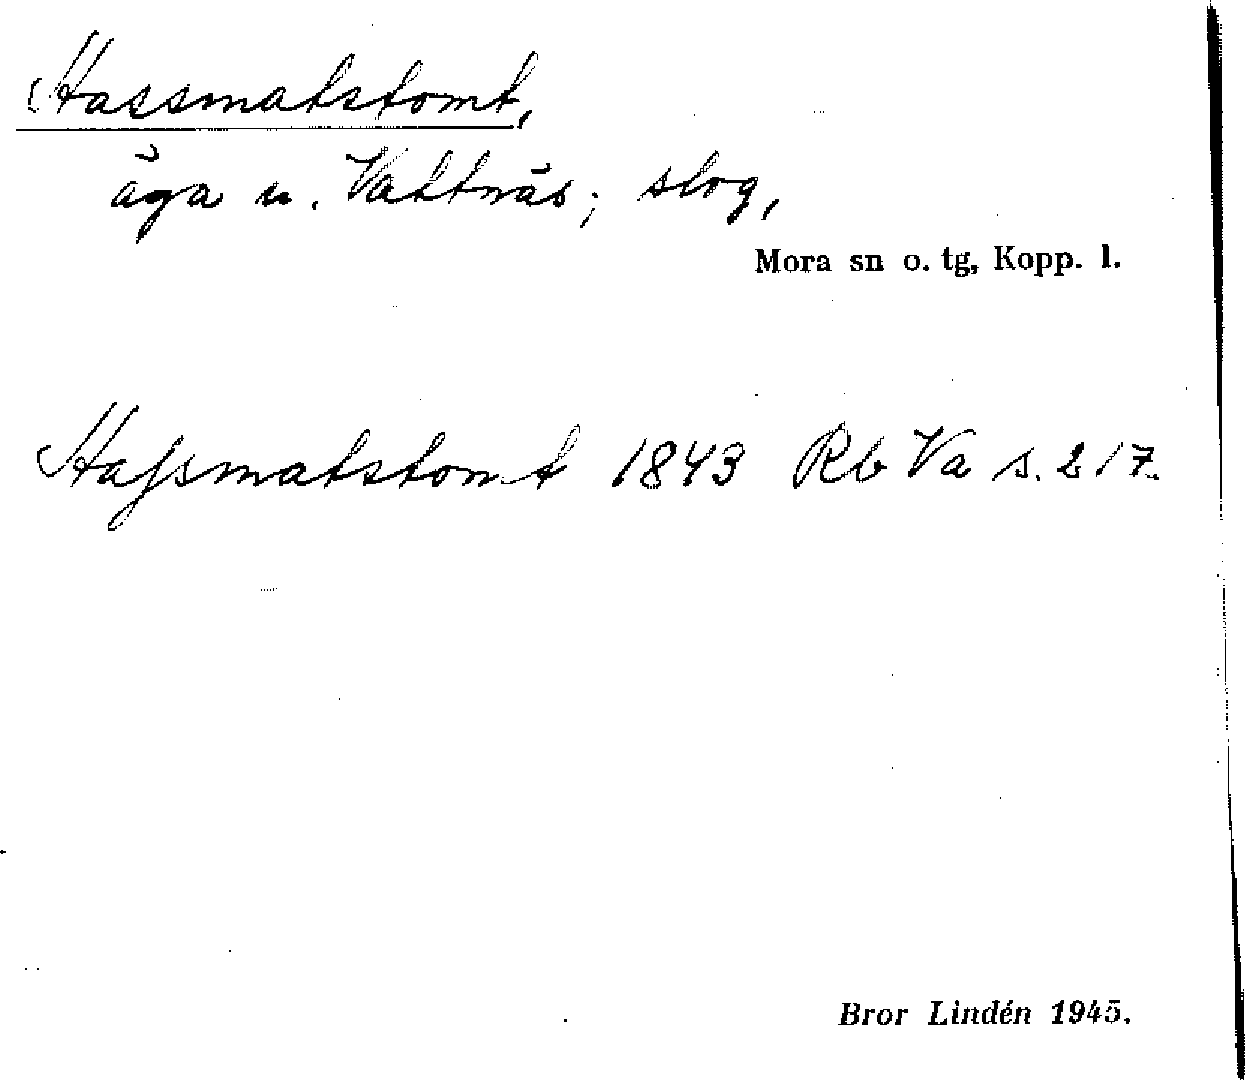 Hassmatstomt,
äga u. Vattnäs; slog,
Mora sn o. tg, Kopp. l.
Hassmatstomt 1843 Rb Va s. 217.
Bror Lindén 1945.